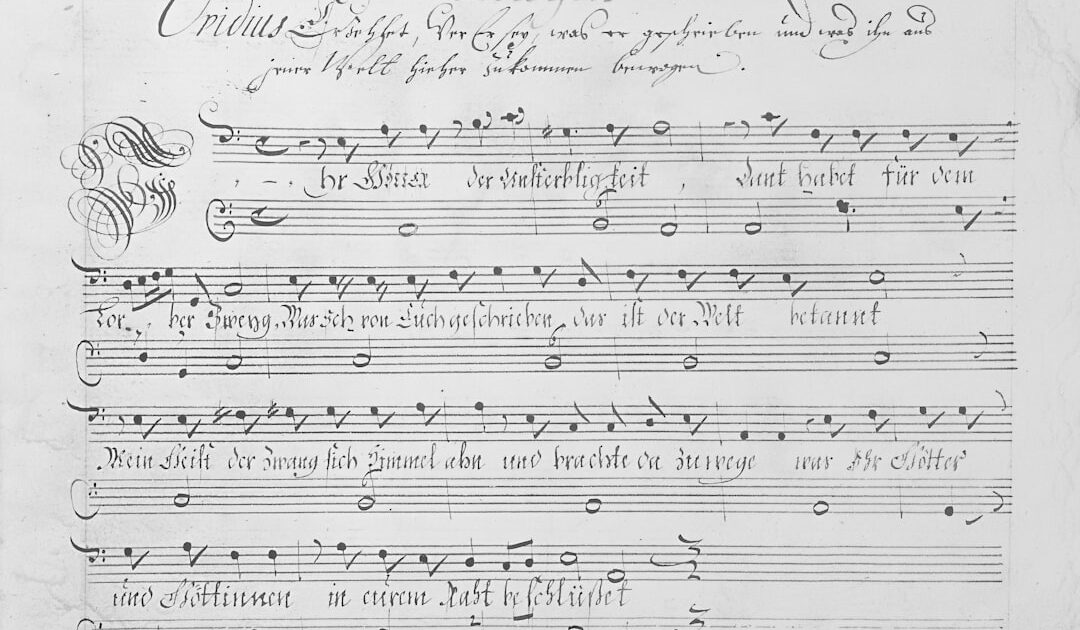 Ovidius Erzehlet, Wer Er sey, was er geschrieben und was ihn aus
jener Welt hieher zukommen bewogen.
Ihr Götter der Unsterbligkeit, Dank habet für dem
Lor-ber Zweyg, Was Ich von Euch geschrieben, das ist der Welt bekannt
Mein Geist der zwang sich Himmel ahn und brachte da zuwege was Ihr Götter
und Göttinnen in eurem Raht beschlüßet